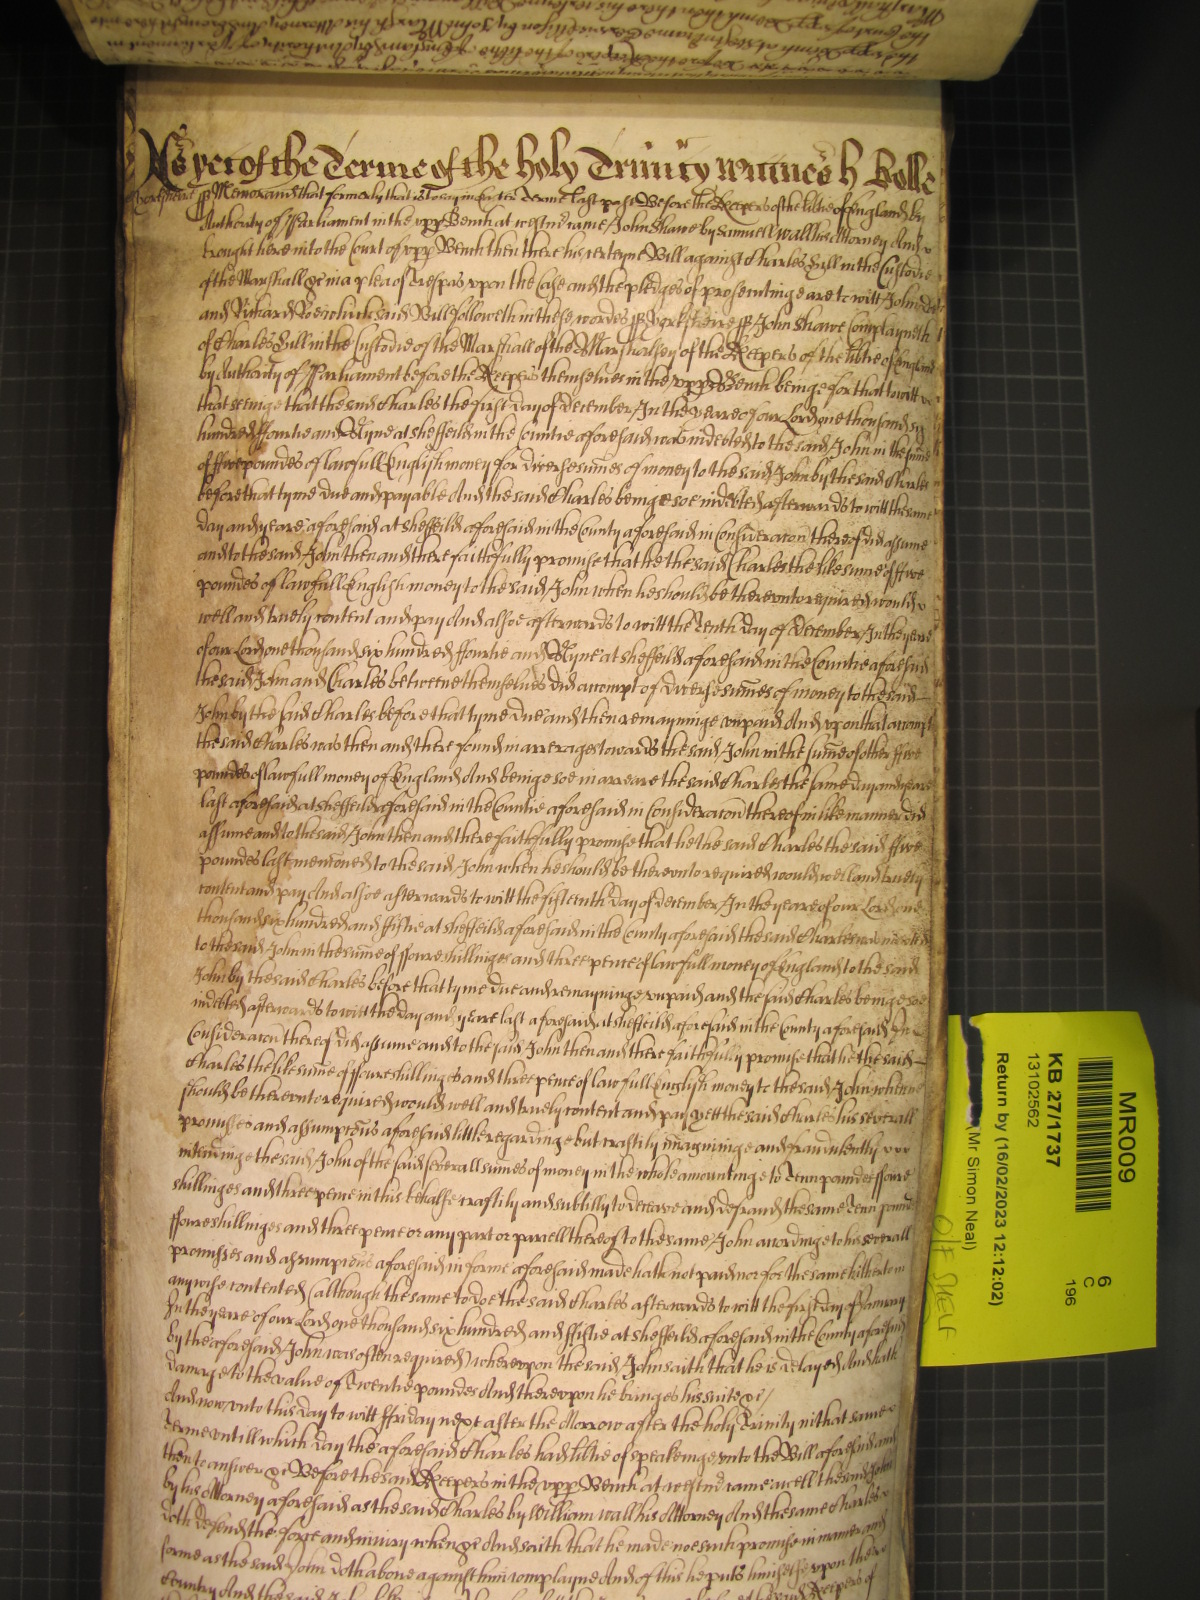 As yet of the Terme of the holy Trinity Wittnes H Rolle
Yorkshire ss Memorand that formerly that is to say in Easter Terme last past Before the Keepers of the libtie of England by
Authority of Parliament in the vpp Bench at westmr came John Shawe by Samuell wall his Attorney And
brought here into the Court of vpp Bench then there his certeyne Bill against Charles in the Custodie
of the Marshall &c in a plea of Trespas vpon the Case and the pledges of prosecutinge are to witt John
and Richard Roe which said Bill followeth in these wordes ss Yorkshire ss John Shawe Complayneth
of Charles in the Custodie of the Marshall of the Marshalsey of the Keepers of the libtie of England
by Authority of Parliament before the Keepers themselves in the vpper Bench beinge for that to witt
that seeinge that the said Charles the first day of December In the yeare of our Lord one thousand six
hundred ffourtie and Nyne at sheffeild in the Countie aforesaid was indebted to the said John in the sume
of ffive poundes of lawfull English money for diverse sumes of money to the said John by the said Charles
before that tyme due and payable And the said Charles beinge soe indebted afterwards to witt the same
day and yeare aforesaid at sheffeild aforesaid in the County aforesaid in Consideracon thereof did assume
and to the said John then and there faithfully promise that he the said Charles the like sume of ffive
poundes of lawfull English money to the said John when he should be therevnto required would
well and truely content and pay And alsoe afterwards to witt the Tenth day of December In the yeare
of our Lord one thousand six hundred ffourtie and Nyne at sheffeild aforesaid in the Countie aforesaid
the said John and Charles betweene themselves did accompt of diverse sumes of money to the said
John by the said Charles before that tyme due and then remayninge vnpaid And vpon that accompt
the said Charles was then and there found in arrerages towards the said John in the sume of other ffive
poundes of lawfull money of England And beinge soe in arreare the said Charles the same day and yeare
last aforesaid at sheffeild aforesaid in the Countie aforesaid in Consideracon thereof in like manner did
assume and to the said John then and there faithfully promise that he the said Charles the said ffive
poundes last mencioned to the said John when he should be therevnto required would well and truely
content and pay And alsoe afterwards to witt the fifteenth day of December In the yeare of our Lord one
thousand six hundred and ffiftie at sheffeild aforesaid in the County aforesaid the said Charles was indebted
to the said John in the sume of ffoure shillinges and three pence of lawfull money of England to the said
John by the said Charles before that tyme due and remayninge vnpaid and the said Charles beinge soe
indebted afterwards to witt the day and yeare last aforesaid at sheffeild aforesaid in the County aforesaid In
Consideracon thereof did assume and to the said John then and there faithfully promise that he the said
Charles the like sume of ffoure shillinges and three pence of lawfull English money to the said John when he
should be therevnto required would well and truely content and pay yett the said Charles his severall
promisses and assumpcons aforesaid little regardinge but craftily imagininge and fraudulently
intendinge the said John of the said severall sumes of money in the whole amountinge to Tenn poundes ffoure
shillinges and three pence in this behalfe craftily and subtilly to deceave and defraud the same Tenn pounds
ffoure shillinges and three pence or any part or parcell thereof to the same John accordinge to his severall
promisses and assumpcons aforesaid in forme aforesaid made hath not paid nor for the same hitherto in
any wise contented (although the same to doe the said Charles afterwards to witt the first day of January
In the yeare of our Lord one thousand six hundred and ffiftie at sheffeild aforesaid in the County aforesaid
by the aforesaid John was often required) wherevpon the said John saith that he is delayed And hath
damage to the value of Twentie poundes And therevpon he bringes his suite &c /
And now vnto this day to witt ffriday next after the Morrow after the holy Trinity in that same
Terme vntill which day the aforesaid Charles had libtie of speakeinge vnto the Bill aforesaid and
then to answer &c Before the said Keepers in the vpp Bench at westmr came as well the said John
by his Attorney aforesaid as the said Charles by William wall his Attorney And the same Charles
doth defend the forge and iniury when &c And saith that he made noe such promise in maner and
forme as the said John doth above against him complayne And of this he putts himselfe vpon the
Country And the said John Keepers of
MR009
6
C
196
KB 27/1737
13102562
Return by (16/02/2023 12:12:02)
(Mr Simon Neal)
O/E SHELF